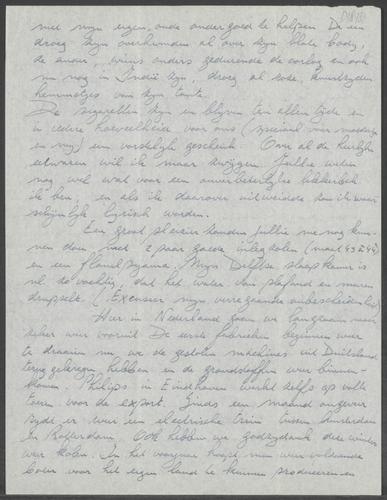 met mijn eigen oude ondergoed te helpen. De een
droeg zijn overhemden al over zijn blote body,
de ander, wiens ouders gedurende de oorlog en ook
nu nog in Indië zijn, droeg al rode,
hemmetjes van zijn tante.
De sigaretten zijn en blijven ten allen tijde en
in iedere hoeveelheid voor ons (speciaal voor moeder
en mij) een vorstelijk geschenk. Over al de heerlijke
eetwaren wil ik maar zwijgen. Jullie weten
nog wel wat voor een onverbeterlijke lekkerbek
ik ben, en als ik daarover uitweidde zou ik waar-
schijnlijk lyrisch worden.
Een groot plezier zouden jullie me nog kun-
nen doen met 2 paar goede (maat 43 à 44)
en een flanel pyama. Mijn Delftse slaapkamer is
nl. zo vochtig, dat het water van plafond en muren
druppelt. (Excuseer mijn verregaande onbescheidenheid)
Hier in Nederland gaan we langzaam maar
zeker weer vooruit. De eerste fabrieken beginnen weer
te draaien nu we de gestolen machines uit Duitsland
terug gekregen hebben en de grondstoffen weer binnen-
komen. Philips in Eindhoven werkt zelfs op volle
toeren voor de export. Sinds een maand ongeveer
rijdt er weer een electrische trein tussen Amsterdam
en Rotterdam. Ook hebben we godzijdank deze winter
weer kolen. In het voorjaar hoopt men weer voldoende
boter voor het eigen land te kunnen produceren en